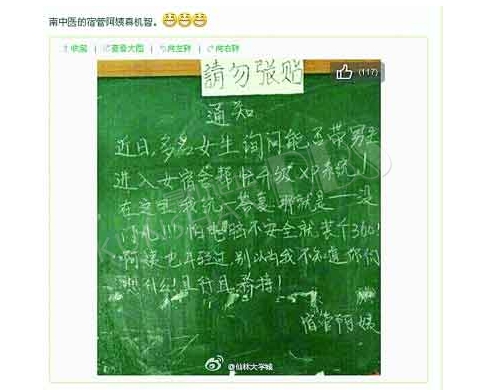 南中医的宿管阿姨真机智。
收藏 | 查看大图 | 向左转 | 向右转
請勿张贴
(117)
通知
近日，多名女生询问能否带男生
进入女宿舍帮忙升级XP系统！
在这里我统一答复 那就是——没
门儿!!! 怕电脑不安全就装个360!
阿姨也年轻过，别以为我不知道你们
想什么！且行且珍持！
宿管阿姨
@仙林大学城